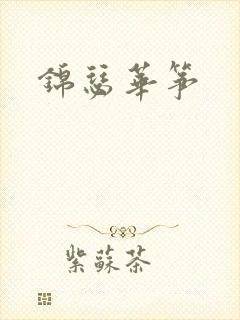 錦瑟華箏
紫蘇茶